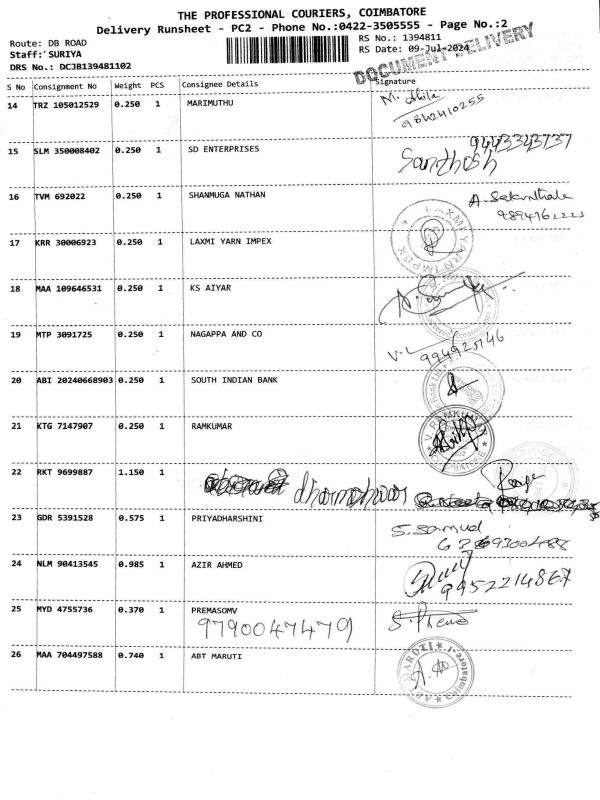 THE PROFESSIONAL COURIERS, COIMBATORE
Delivery Runsheet - PC2 - Phone No.:0422-3505555 - Page No.:2
Route: DB ROAD
RS No.: 1394811
Staff: SURIYA
RS Date: 09-Jul-2024
DRS No.: DCJB139481102
DOCUMENT DELIVERY
S No Consignment No Weight PCS Consignee Details Signature
14 TRZ 105012529 0.250 1 MARIMUTHU
9842410255
15 SLM 350008402 0.250 1 SD ENTERPRISES 9443343737
Santhosh
16 TVM 692022 0.250 1 SHANMUGA NATHAN
17 KRR 30006923 0.250 1 LAXMI YARN IMPEX LAXMI YARN IMPEX
18 MAA 109646531 0.250 1 KS AIYAR
19 MTP 3091725 0.250 1 NAGAPPA AND CO
20 ABI 20240668903 0.250 1 SOUTH INDIAN BANK
21 KTG 7147907 0.250 1 RAMKUMAR V. RAMKUMAR
22 RKT 9699887 1.150 1
23 GDR 5391528 0.575 1 PRIYADHARSHINI S. Samuel
24 NLM 90413545 0.985 1 AZIR AHMED
9952214867
25 MYD 4755736 0.370 1 PREMASOMV
9790047479
26 MAA 704497588 0.740 1 ABT MARUTI MARUTI